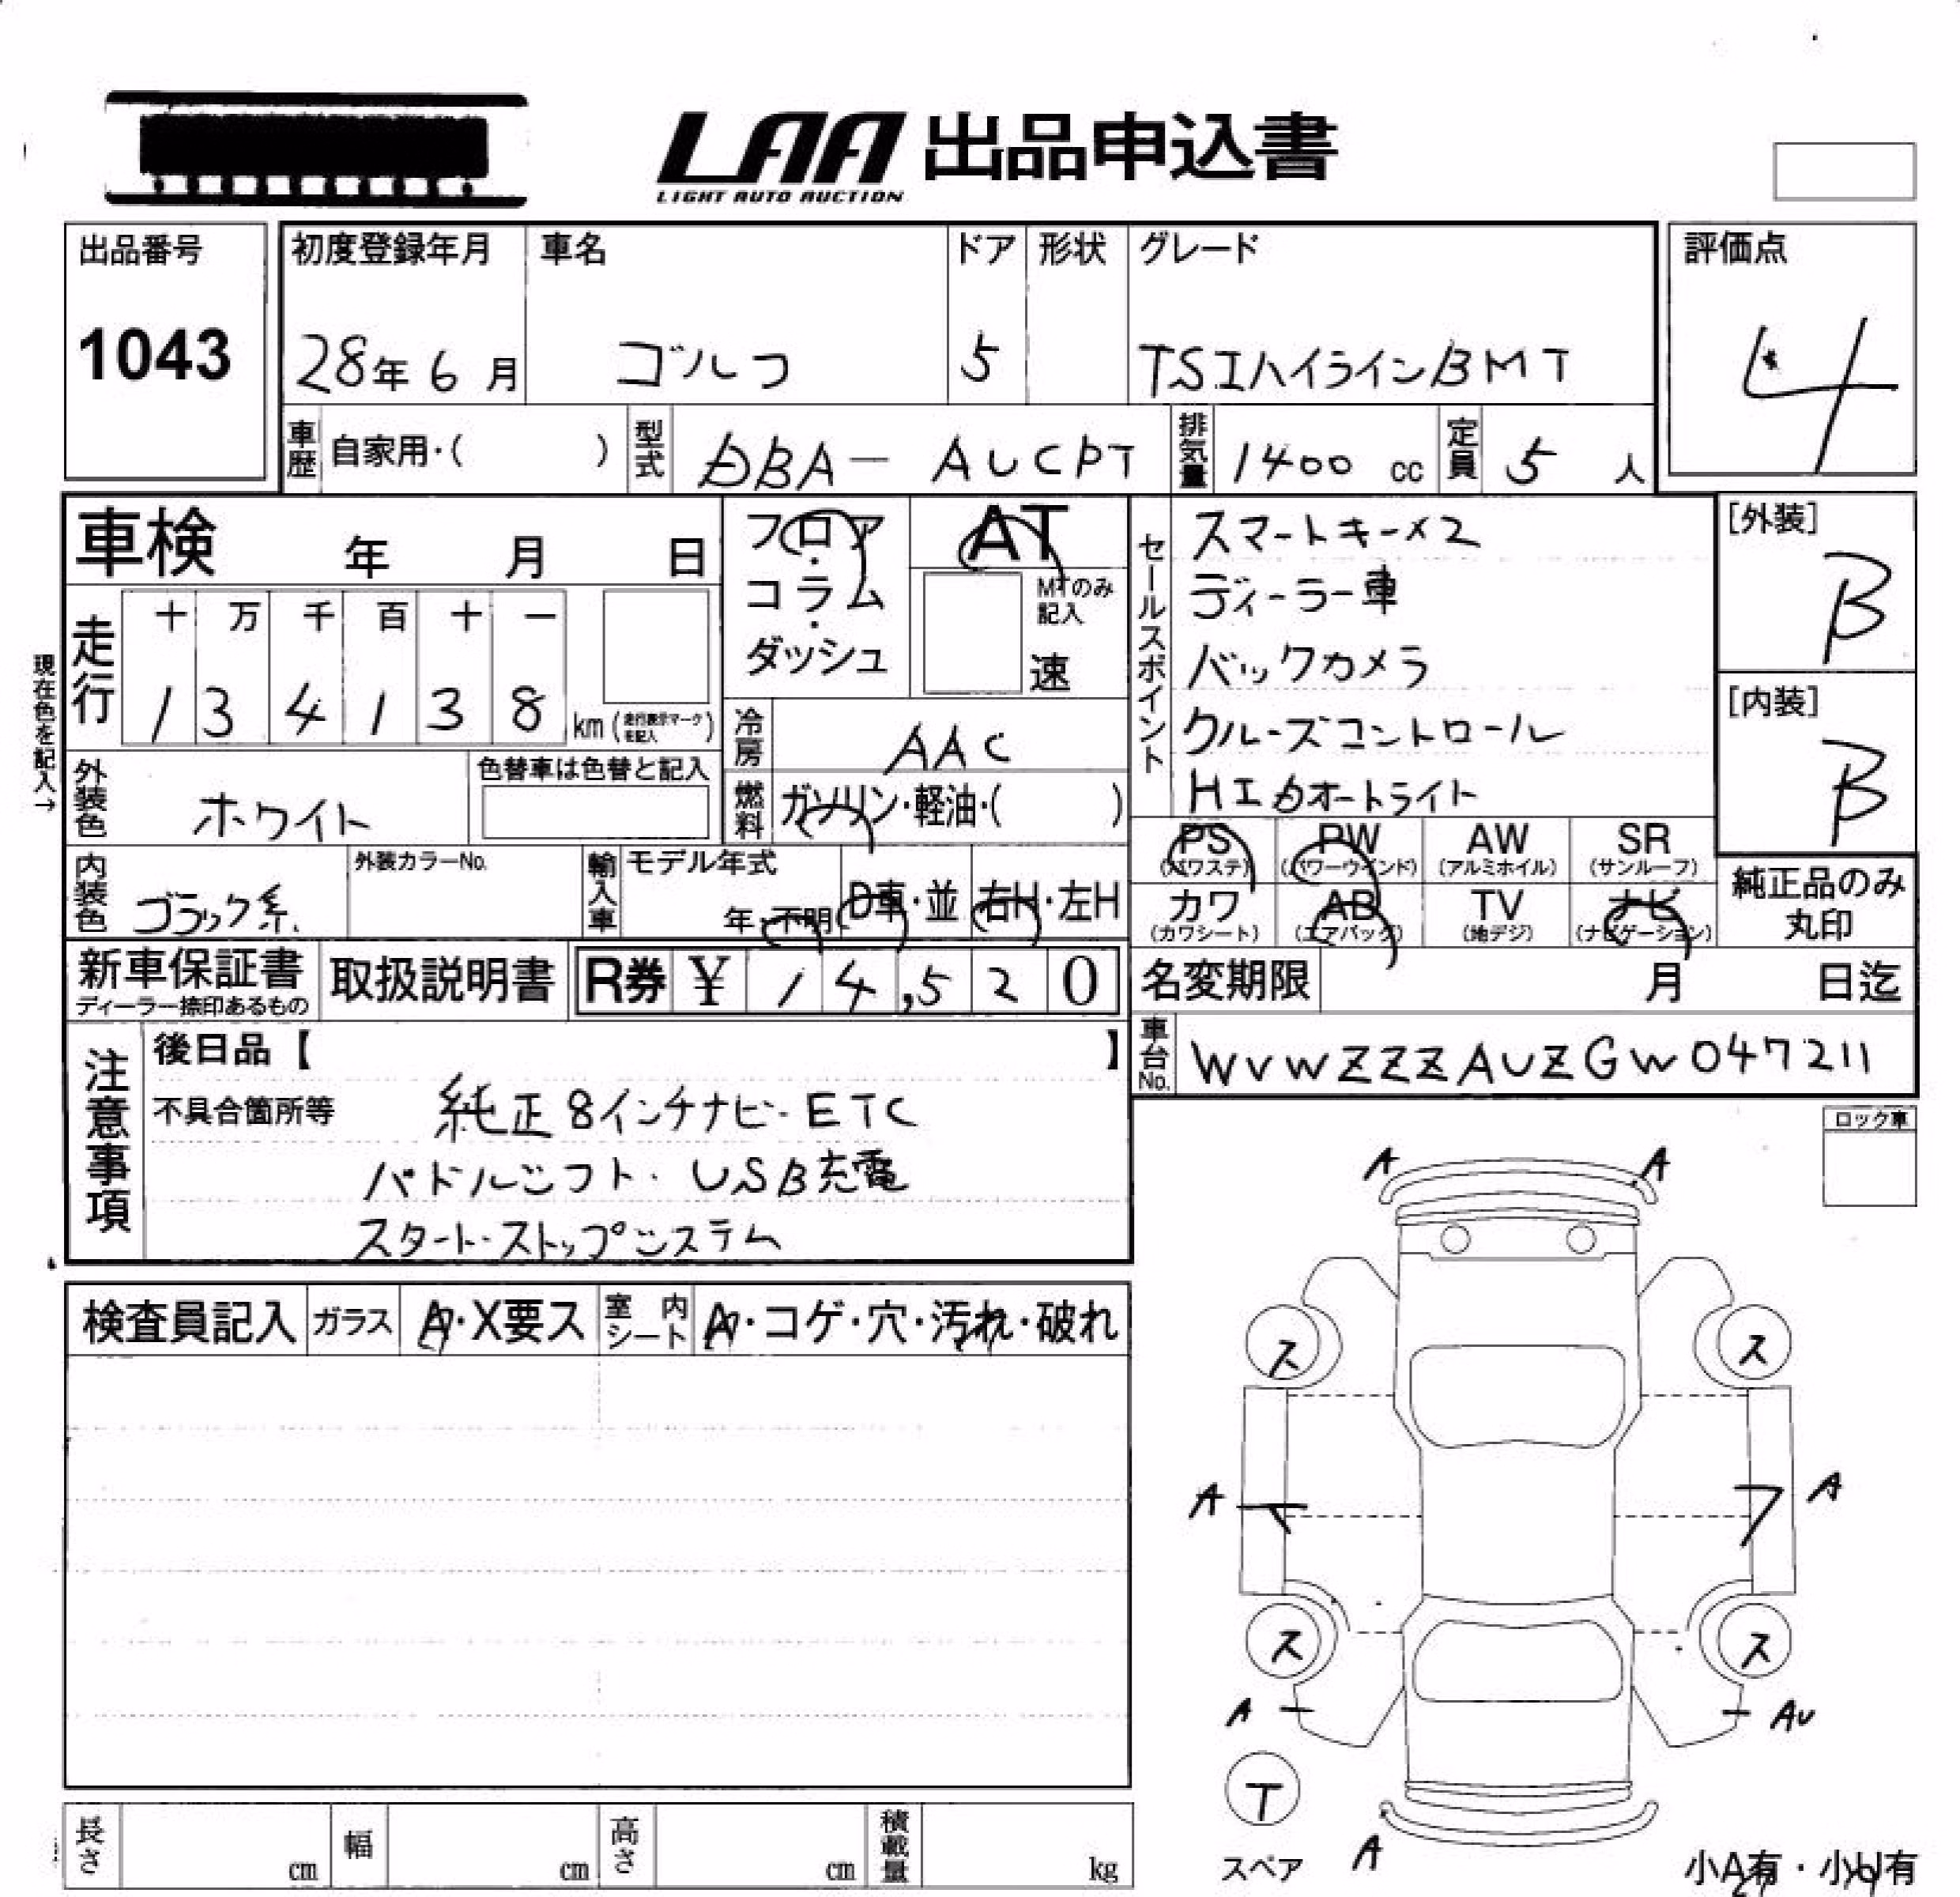 LAA 出品申込書
LIGHT AUTO AUCTION
出品番号
1043
初度登録年月
28年 6月
車名
ゴルフ
ドア
5
形状
グレード
TSIハイラインBMT
評価点
4
車歴 自家用・( )
型式 DBA- AUCPT
排気量 1400 cc
定員 5 人
車検 年 月 日
走行
十 万 千 百 十 一
1 3 4 1 3 8 km (走行表示マークを記入)
現在色を記入→
外装色 ホワイト
色替車は色替と記入
内装色 ブラック系
外装カラーNo.
フロア・コラム・ダッシュ
AT
MTのみ記入
速
冷房 AAC
燃料 ガソリン・軽油・( )
輸入車 モデル年式
年・不明
D車・並
右H・左H
セールスポイント
スマートキー×2
ディーラー車
バックカメラ
クルーズコントロール
HIDオートライト
[外装]
B
[内装]
B
PS (パワステ)
PW (パワーウインド)
AW (アルミホイル)
SR (サンルーフ)
カワ (カワシート)
AB (エアバッグ)
TV (地デジ)
ナビ (ナビゲーション)
純正品のみ丸印
新車保証書
ディーラー捺印あるもの
取扱説明書
R券 ¥ 14,520
名変期限 月 日迄
車台No. WVWZZZAUZGW047211
注意事項
後日品【 】
不具合箇所等
純正8インチナビ・ETC
パドルシフト・USB充電
スタート・ストップシステム
検査員記入
ガラス
A・X要ス
室内シート
A・コゲ・穴・汚れ・破れ
ロック車
A
A
ス
ス
A
A
ス
ス
A
AU
T
スペア
A
小A有・小U有
長さ cm
幅 cm
高さ cm
積載量 kg